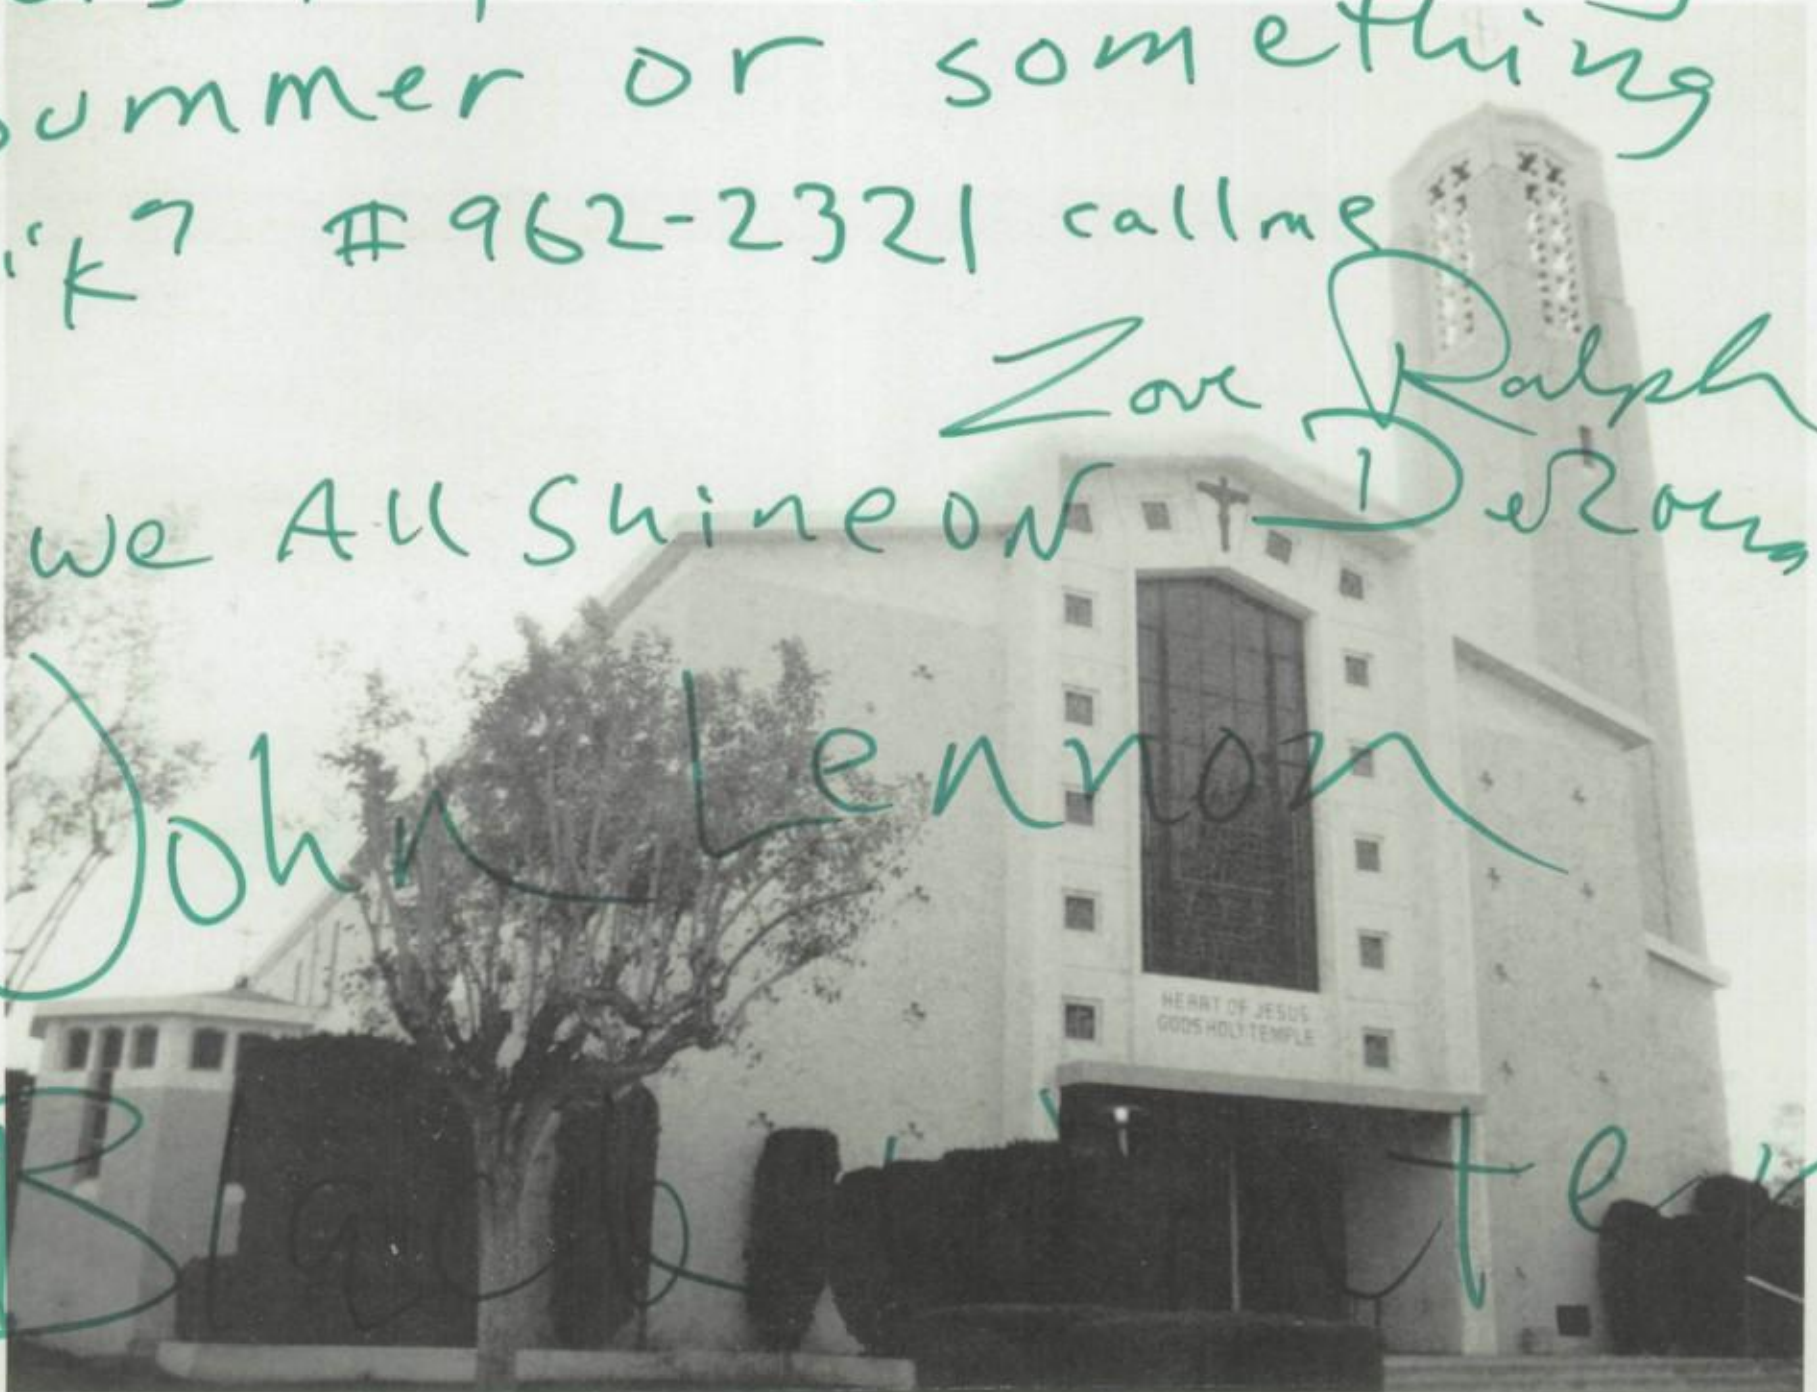 summer or something
"k" #962-2321 call me
Love Ralph
we All Shine ON DeRoma
John Lennon
HEART OF JESUS
GODS HOLY TEMPLE